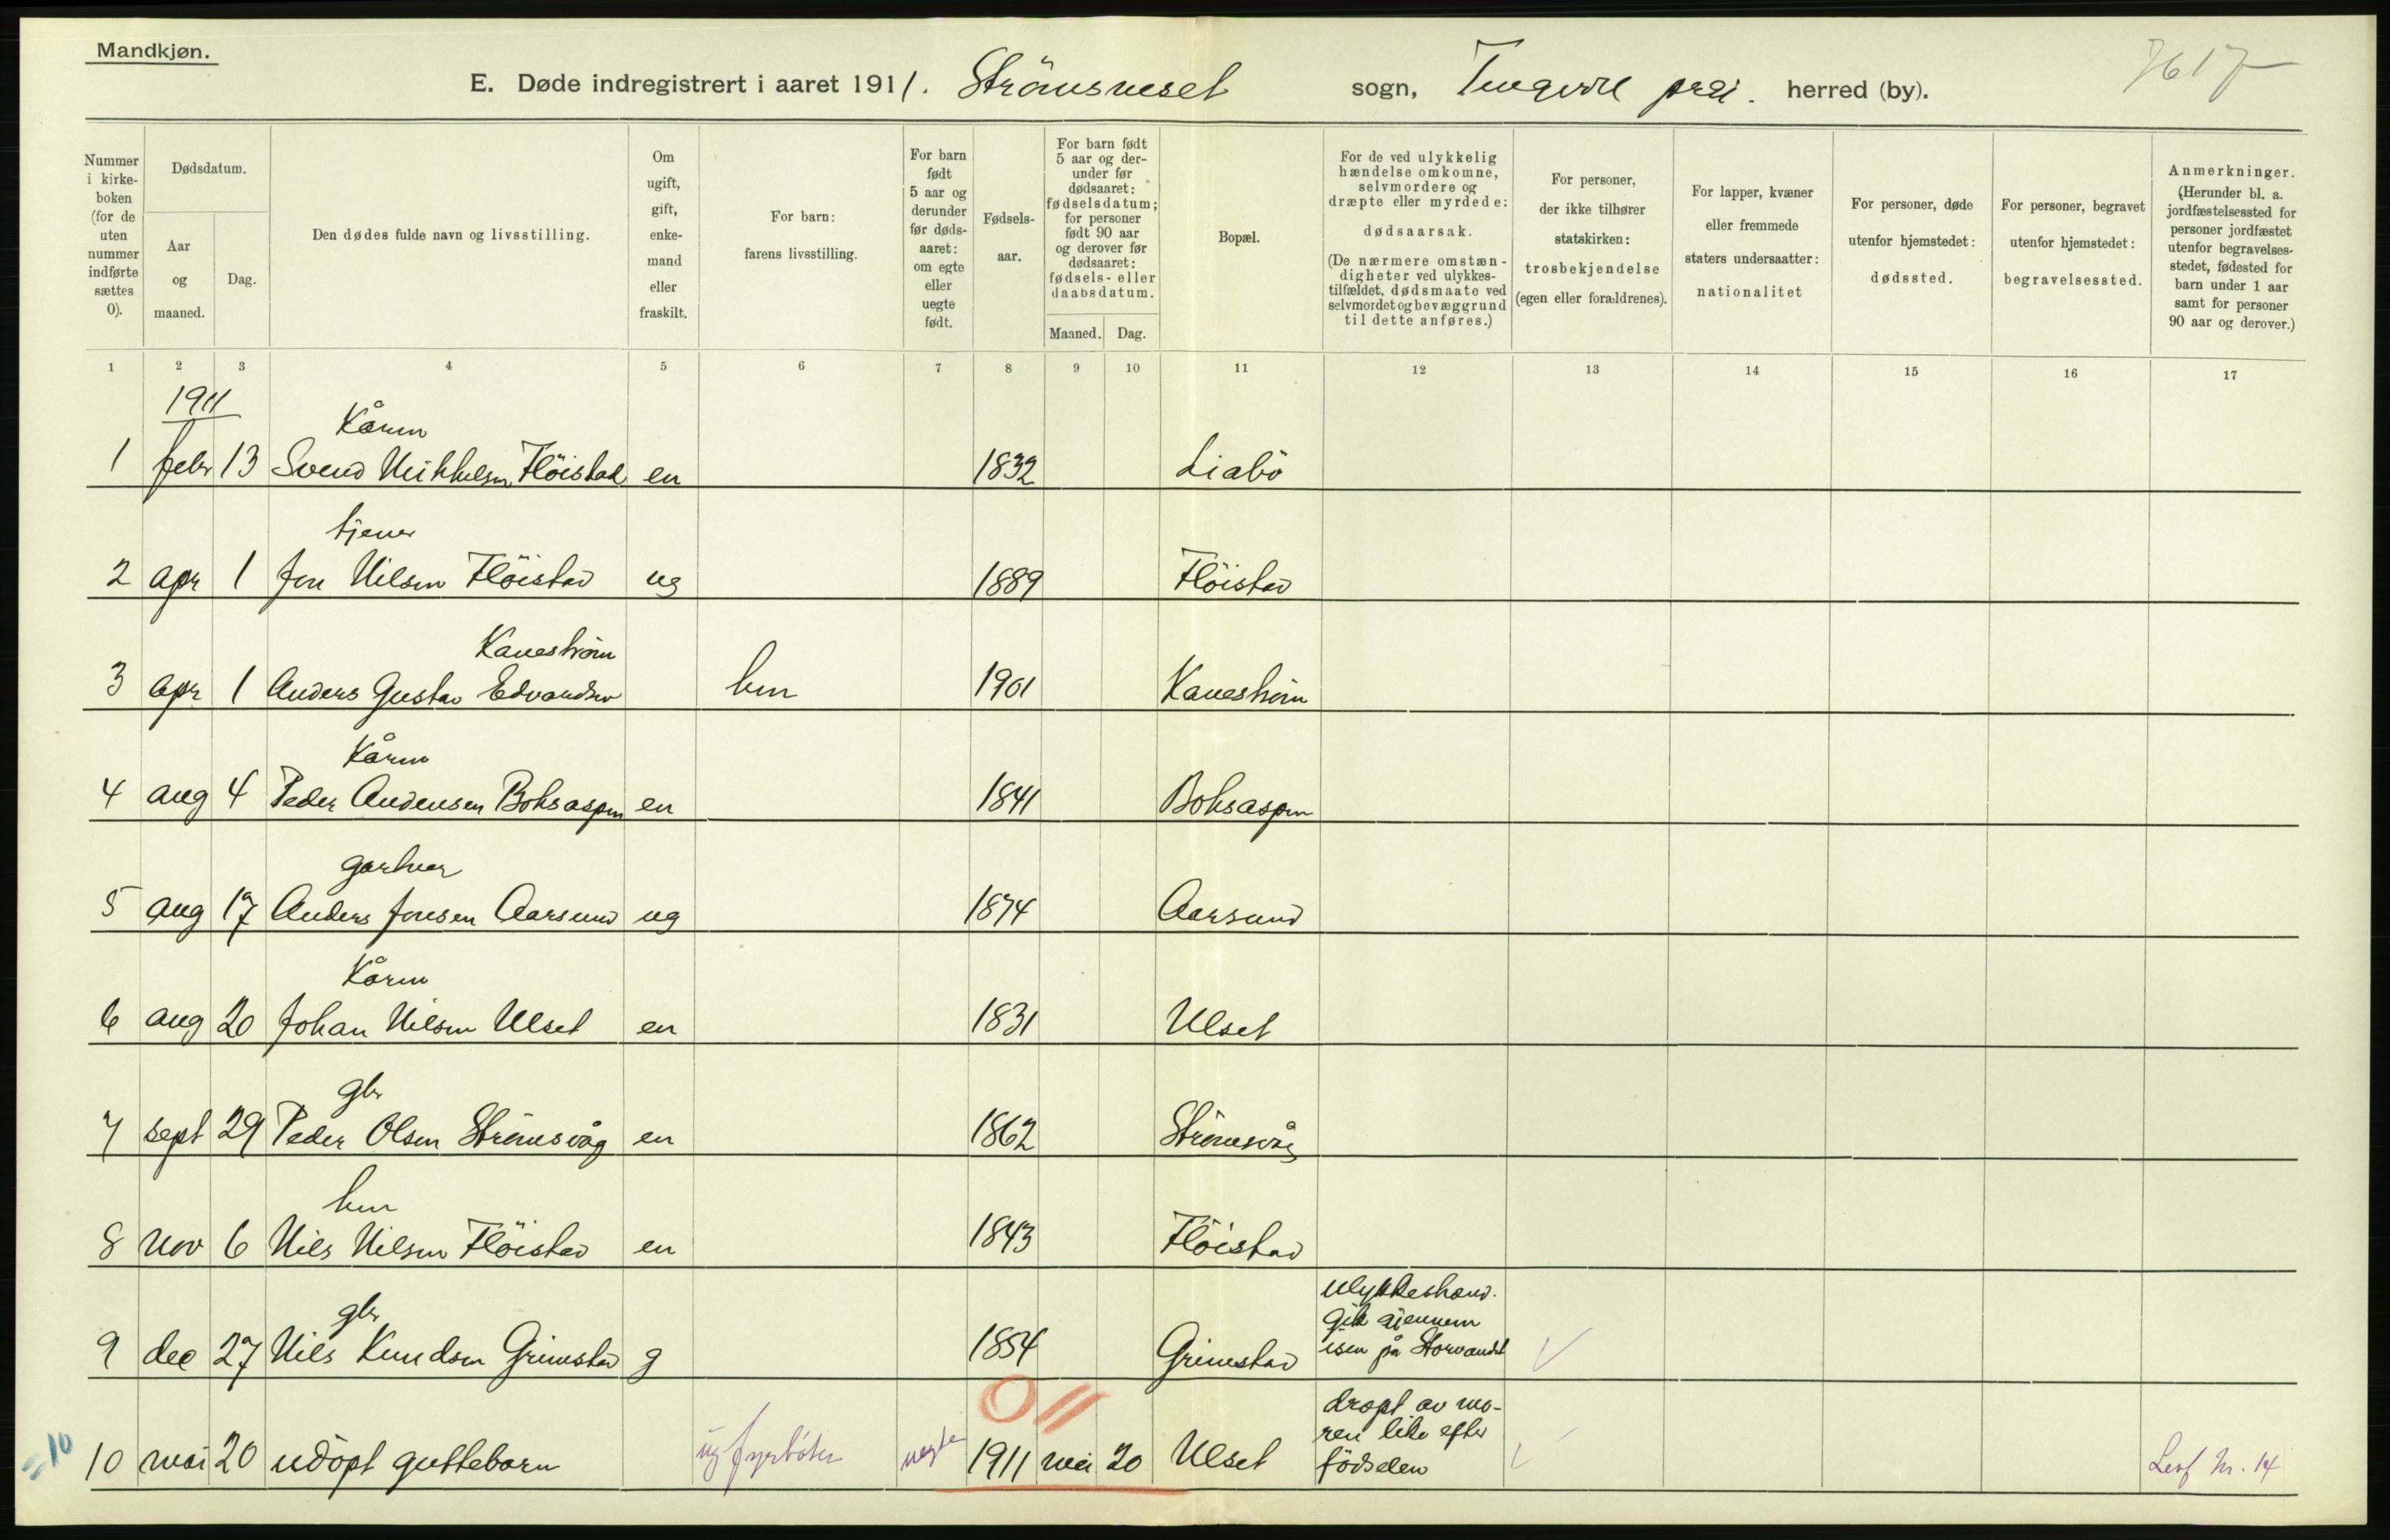 Mandkjøn.
E. Døde indregistrert i aaret 1911. Strömsneset sogn, Tingvoll pregj. herred (by).
7617
Nummer i kirke-boken (for de uten nummer indførte sættes 0).
Dødsdatum.
Aar og maaned.
Dag.
Den dødes fulde navn og livsstilling.
Om ugift, gift, enke-mand eller fraskilt.
For barn: farens livsstilling.
For barn født 5 aar og derunder før døds-aaret: om egte eller uegte født.
Fødsels-aar.
For barn født 5 aar og der-under før dødsaaret: fødselsdatum; for personer født 90 aar og derover før dødsaaret: fødsels- eller daabsdatum.
Maaned. Dag.
Bopæl.
For de ved ulykkelig hændelse omkomne, selvmordere og dræpte eller myrdede: dødsaarsak.
(De nærmere omstæn-digheter ved ulykkes-tilfældet, dødsmaate ved selvmordet og bevæggrund til dette anføres.)
For personer, der ikke tilhører statskirken: trosbekjendelse (egen eller forældrenes).
For lapper, kvæner eller fremmede staters undersaatter: nationalitet
For personer, døde utenfor hjemstedet: dødssted.
For personer, begravet utenfor hjemstedet: begravelsessted.
Anmerkninger. (Herunder bl. a. jordfæstelsessted for personer jordfæstet utenfor begravelses-stedet, fødested for barn under 1 aar samt for personer 90 aar og derover.)
1 2 3 4 5 6 7 8 9 10 11 12 13 14 15 16 17
1911
Kårm
1 febr 13 Svend Mikkelsen Flöistad en 1832 Liabö
tjener
2 apr 1 Jon Nilsen Flöistad ug 1889 Flöistad
Kaneström
3 apr 1 Anders Gustav Edvardsen hm 1901 Kaneström
Kårm
4 aug 4 Peder Andersen Boksaspen en 1841 Boksaspen
gartner
5 aug 17 Anders Jonsen Aarsund ug 1874 Aarsund
Kårm
6 aug 20 Johan Nilsen Ulset en 1831 Ulset
gbr
7 sept 29 Peder Olsen Strömsvåg en 1862 Strömsvåg
hm
8 nov 6 Nils Nilsen Flöistad en 1843 Flöistad
gbr
9 dec 27 Nils Knudsen Grimstad g 1854 Grimstad ulykkeshænd. gik gjennem isen på Storvandet
011
10 10 mai 20 udöpt guttebarn ug fyrböter uegte 1911 mai 20 Ulset dræpt av mo-ren like efter födselen Levf Nr. 14